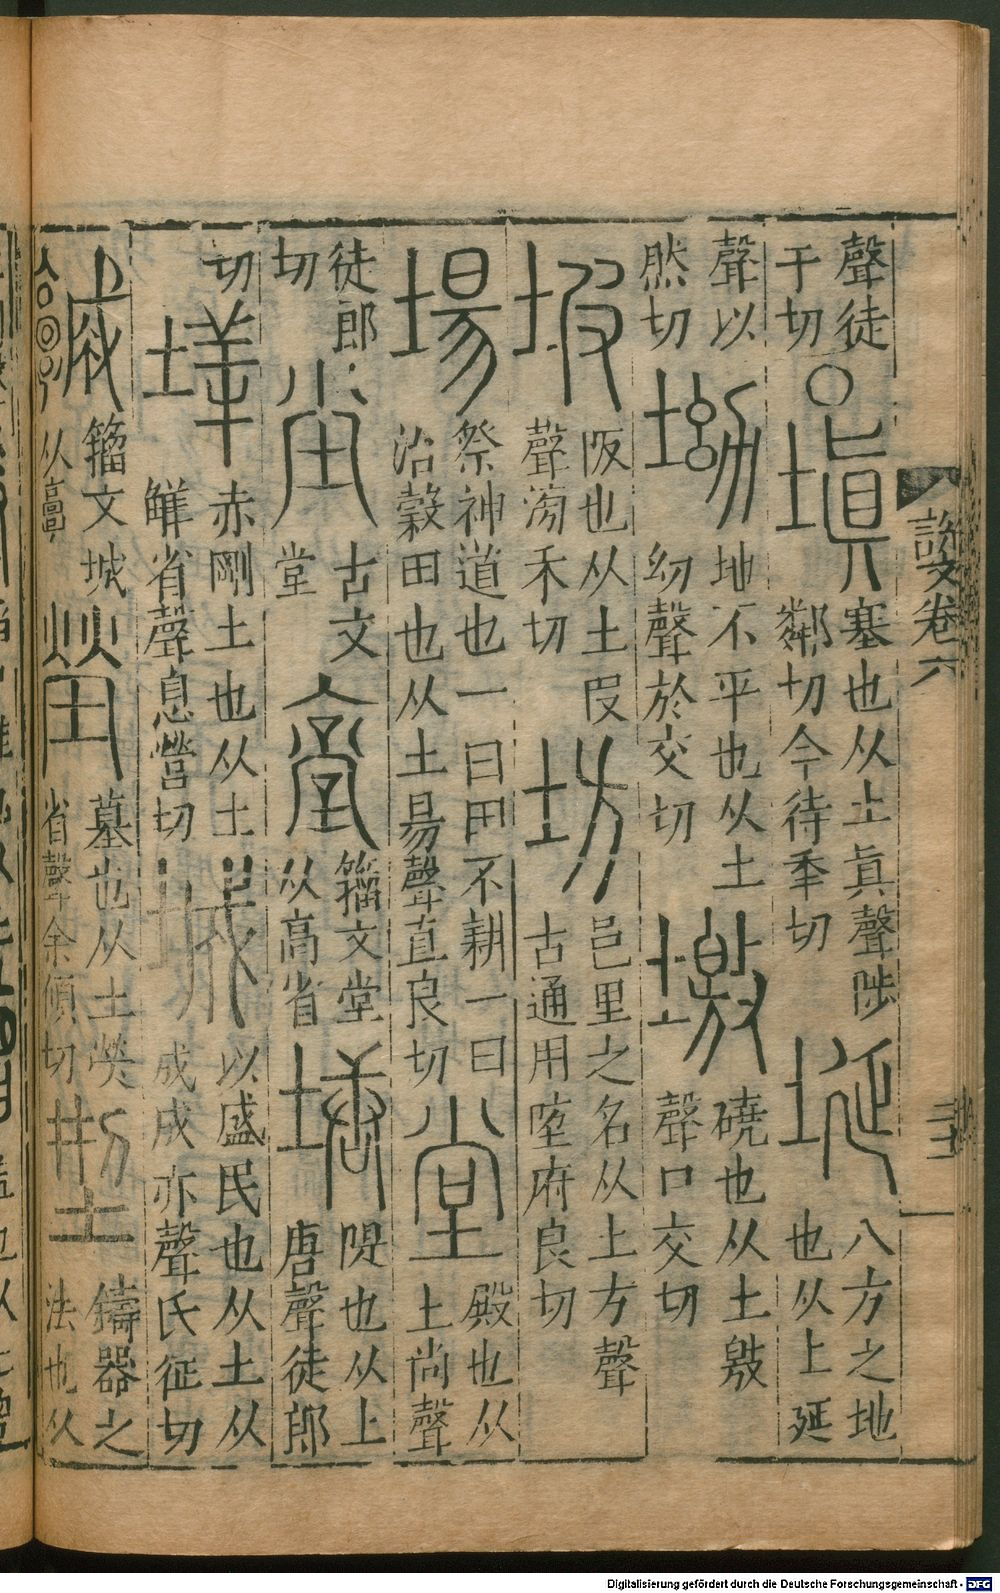 聲徒
干切
〇塡
塞也从土眞聲陟
鄰切今待秊切
埏
八方之地
也从土延
聲以
然切
坳
地不平也从土
幼聲於交切
墽
磽也从土敫
聲口交切
坡
阪也从土叚
聲滂禾切
坊
邑里之名从土方聲
古通用埅府良切
場
祭神道也一曰田不耕一曰
治穀田也从土昜聲直良切
堂
殿也从
土尚聲
徒郎
切
坣
古文
堂
籒文堂
从高省
塘
隄也从土
唐聲徒郎
切
垟
赤剛土也从土
觲省聲息營切
城
以盛民也从土从
成成亦聲氏征切
籒文城
从𩫖
塋
墓也从土熒
省聲余傾切
型
鑄器之
法也从
說文卷六
Digitalisierung gefördert durch die Deutsche Forschungsgemeinschaft - DFG